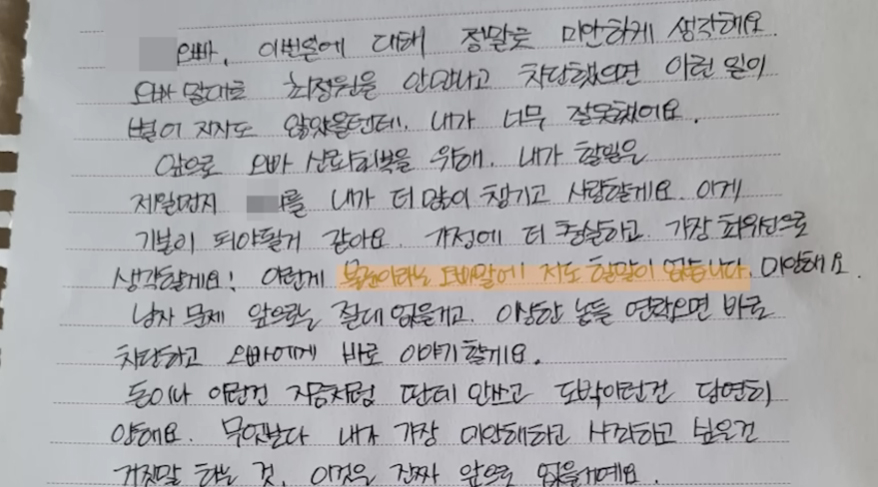 오빠, 이번일에 대해 정말로 미안하게 생각해요.
오빠 말대로 최정원을 안만나고 차단했으면 이런 일이
벌어지지도 않았을텐데, 내가 너무 잘못했어요.
앞으로 오빠 신뢰회복을 위해, 내가 할일은
제일먼저 를 내가 더 많이 챙기고 사랑할게요. 이게
기본이 되야될거 같아요. 가정에 더 충실하고, 가장 최우선으로
생각할게요! 이런게 불륜이라는 오빠말에 저도 할말이 없습니다. 미안해요.
남자 문제 앞으로는 절대 없을게고, 이상한 놈들 연락오면 바로
차단하고 오빠에게 바로 이야기할게요.
돈이나 이런건 지금처럼 딴데 안쓰고 도박이런건 당연히
안해요. 무엇보다 내가 가장 미안해하고 사과하고 싶은건
거짓말 하는 것, 이것은 진짜 앞으로 없을거예요.